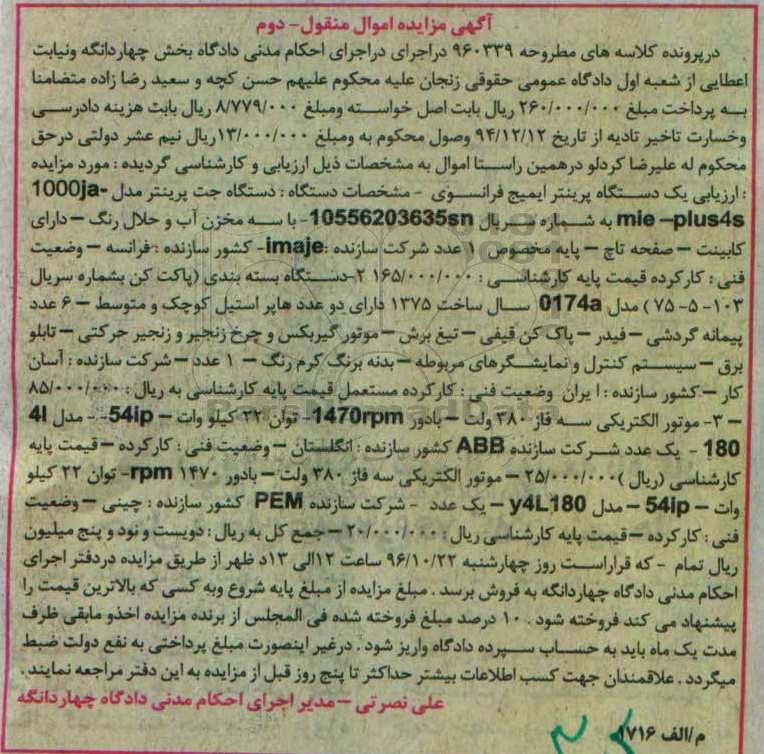 آگهی مزایده اموال منقول- دوم
درپرونده کلاسه های مطروحه ۹۶۰۳۳۹ دراجرای دراجرای احکام مدنی دادگاه بخش چهاردانگه ونیابت
اعطایی از شعبه اول دادگاه عمومی حقوقی زنجان علیه محکوم علیهم حسن کچه و سعید رضا زاده متضامنا
به پرداخت مبلغ ۲۶۰/۰۰۰/۰۰۰ ریال بابت اصل خواسته ومبلغ ۸/۷۷۹/۰۰۰ ریال بابت هزینه دادرسی
وخسارت تاخیر تادیه از تاریخ ۹۴/۱۲/۱۲ وصول محکوم به ومبلغ ۱۳/۰۰۰/۰۰۰ریال نیم عشر دولتی درحق
محکوم له علیرضا کردلو درهمین راستا اموال به مشخصات ذیل ارزیابی و کارشناسی گردیده : مورد مزایده
: ارزیابی یک دستگاه پرینتر ایمیج فرانسوی - مشخصات دستگاه : دستگاه جت پرینتر مدل 1000ja-
mie –plus4s به شماره سریال 10556203635sn- با سه مخزن آب و حلال رنگ – دارای
کابینت – صفحه تاچ – پایه مخصوص ۱ عدد شرکت سازنده :imaje- کشور سازنده :فرانسه – وضعیت
فنی : کارکرده قیمت پایه کارشناسی : ۱۶۵/۰۰۰/۰۰۰ ۲-دستگاه بسته بندی (پاکت کن بشماره سریال
۱۰۳- ۵- ۷۵ ) مدل 0174a سال ساخت ۱۳۷۵ دارای دو عدد هاپر استیل کوچک و متوسط – ۶ عدد
پیمانه گردشی – فیدر – پاک کن قیفی – تیغ برش – موتور گیربکس و چرخ زنجیر و زنجیر حرکتی – تابلو
برق – سیستم کنترل و نمایشگرهای مربوطه – بدنه برنگ کرم رنگ – ۱ عدد – شرکت سازنده : آسان
کار – کشور سازنده : ایران وضعیت فنی : کارکرده مستعمل قیمت پایه کارشناسی به ریال : ۸۵/۰۰۰/۰۰۰
– ۳- موتور الکتریکی سه فاز ۳۸۰ ولت – بادور 1470rpm- توان ۲۲ کیلو وات – 54ip- - مدل 4l
180 - یک عدد شرکت سازنده ABB کشور سازنده : انگلستان – وضعیت فنی : کارکرده – قیمت پایه
کارشناسی (ریال ) ۲۵/۰۰۰/۰۰۰ – موتور الکتریکی سه فاز ۳۸۰ ولت – بادور ۱۴۷۰ rpm- توان ۲۲ کیلو
وات – 54ip – مدل y4L180 – یک عدد - شرکت سازنده PEM کشور سازنده : چینی – وضعیت
فنی : کارکرده – قیمت پایه کارشناسی ریال : ۲۰/۰۰۰/۰۰۰ – جمع کل به ریال : دویست و نود و پنج میلیون
ریال تمام - که قراراست روز چهارشنبه ۹۶/۱۰/۲۲ ساعت ۱۲الی ۱۳د ظهر از طریق مزایده دردفتر اجرای
احکام مدنی دادگاه چهاردانگه به فروش برسد . مبلغ مزایده از مبلغ پایه شروع وبه کسی که بالاترین قیمت را
پیشنهاد می کند فروخته شود . ۱۰ درصد مبلغ فروخته شده فی المجلس از برنده مزایده اخذو مابقی ظرف
مدت یک ماه باید به حساب سپرده دادگاه واریز شود . درغیر اینصورت مبلغ پرداختی به نفع دولت ضبط
میگردد . علاقمندان جهت کسب اطلاعات بیشتر حداکثر تا پنج روز قبل از مزایده به این دفتر مراجعه نمایند .
علی نصرتی – مدیر اجرای احکام مدنی دادگاه چهاردانگه
م/الف ۱۷۱۶